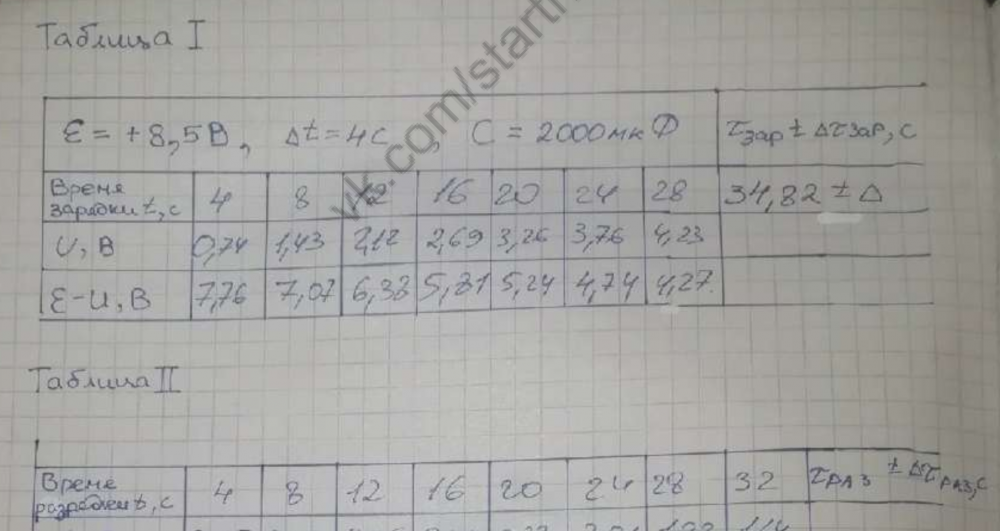 Таблица I
vk.com/start
ε = +8,5В, Δt = 4с, C = 2000мкФ τзар ± Δτзар, с
Време зарядки t, с 4 8 12 16 20 24 28 34,82 ± Δ
U, В 0,74 1,43 2,12 2,69 3,26 3,76 4,23
ε-U, В 7,76 7,07 6,38 5,81 5,24 4,74 4,27
Таблица II
Време разрядки t, с 4 8 12 16 20 24 28 32 τРАЗ ± ΔτРАЗ, с